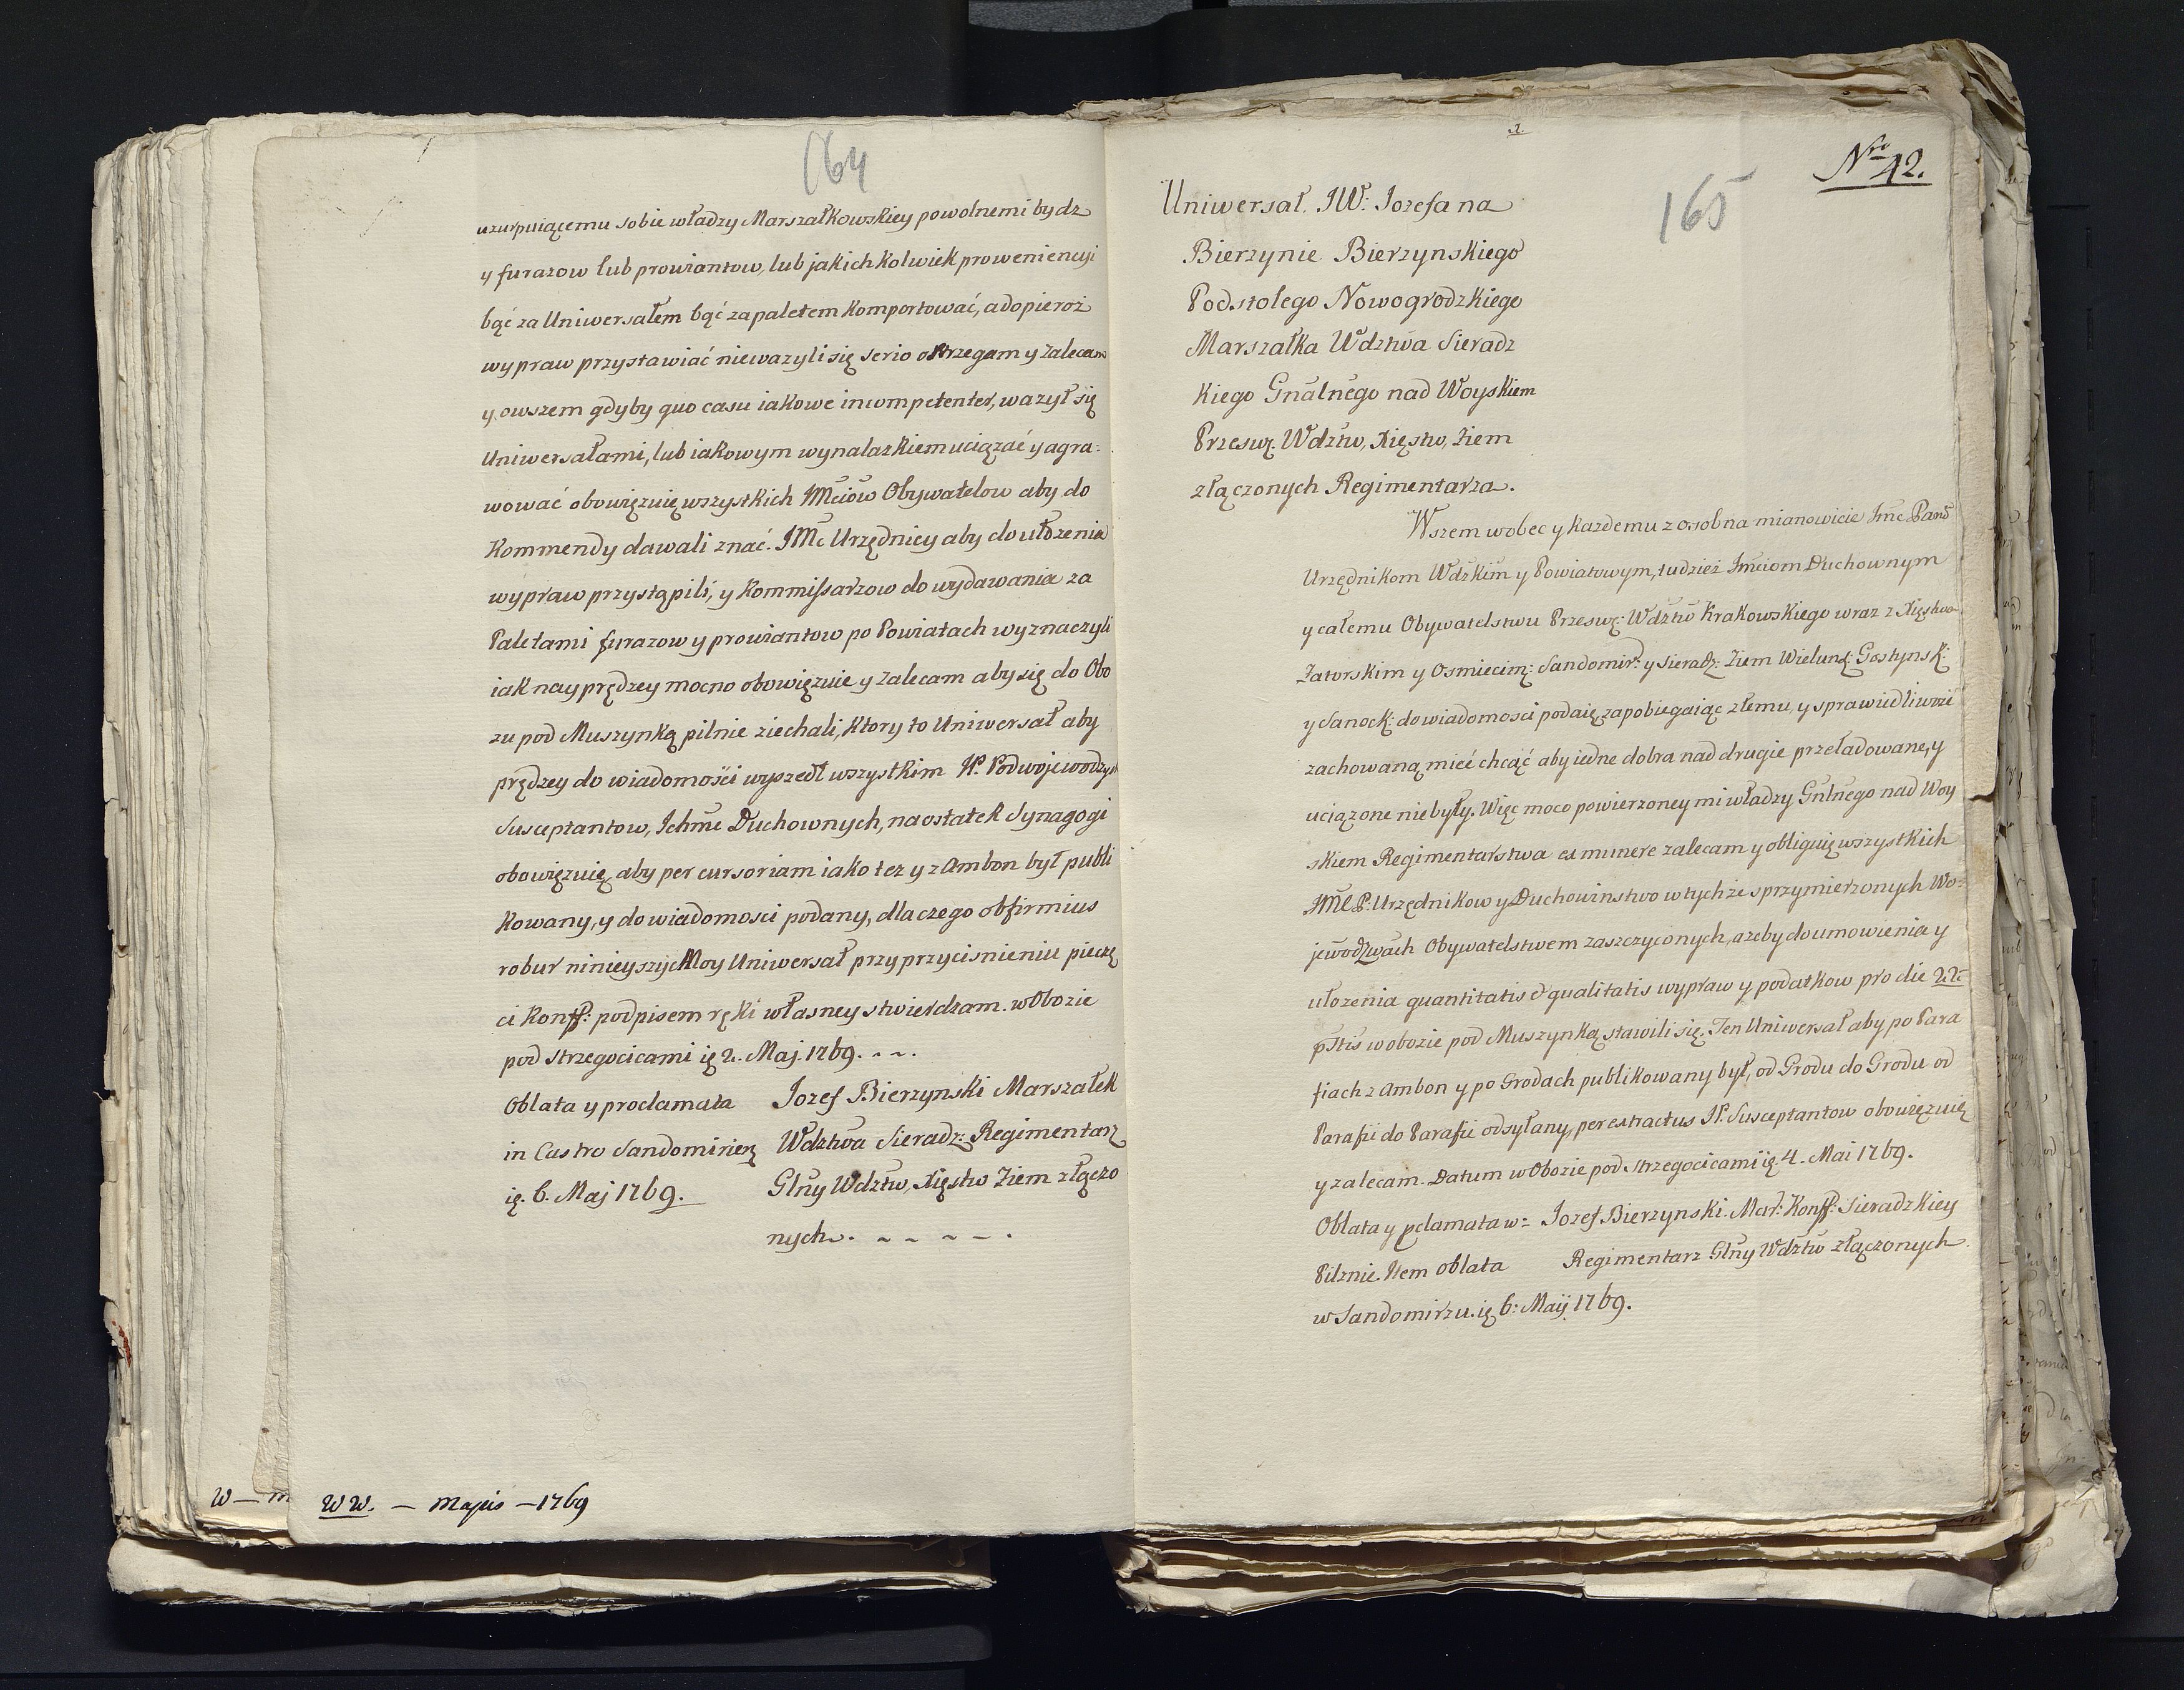 164
uzurpuiącemu sobie władzy Marszałkowskiey powolnemi bydz
y furazow lub prowiantow, lub jakichkolwiek proweniencyi
bąć za Uniwersałem bąć za paletem komportować, a dopieroż
wypraw przystawiać nieważyli się serio ostrzegam y zalecam
y owszem gdyby quo casu iakowe incompetenter, ważył się
Uniwersałami, lub iakowym wynalazkiem uciązać y agra=
wować obowięzuię wszystkich JMciow Obywatelow aby do
Kommendy dawali znać. JMc Urzędnicy aby do ułożenia
wypraw przystąpili, y Kommissarzow do wydawania za
Paletami furazow y prowiantow po Powiatach wyznaczyli
iak nayprędzey mocno obowięzuie y zalecam aby się do Obo
zu pod Muszynką pilnie ziechali, ktory to Uniwersał aby
prędzey do wiadomości wyszedł wszystkim JP. Podwojewodzych
Susceptantow, Ichmc Duchownych, na ostatek Synagogi
obowięzuię, aby per cursoriam iako tez y z Ambon był publi
kowany, y do wiadomosci podany, dla czego ob firmius
robur ninieyszych Moy Uniwersał przy przycisnieniu pieczę
ci Konff: podpisem ręki własney stwierdzam. w Obozie
pod Strzegocicami ię 2. Maj. 1769. - - .
Oblata y proclamata Jozef Bierzynski Marszałek
in Castro Sandomirien Wdztwa Sieradz: Regimentarz
ię. 6. Maj 1769. Glny Wdztw, Xięstw Ziem złączo
nych. - - - - - .
W — m
WW. — Majus — 1769
1.
Nro 42.
165
Uniwersał. JW: Jozefa na
Bierzynie Bierzynskiego
Podstolego Nowogrodzkiego
Marszałka Wdztwa Sieradz
kiego Gnalnego nad Woyskiem
Przeswę: Wdztw, Xięstw, Ziem
złączonych Regimentarza.
Wszem wobec y każdemu z osobna mianowicie Jmc Pano
Urzędnikom Wdzkim y Powiatowym, tudzież Jmciom Duchownym
y całemu Obywatelstwu Przeswę: Wdztw Krakowskiego wraz z Xięstwa
Zatorskim y Osmiecimę: Sandomir: y Sieradz: Ziem Wielunę: Gostynsk:
y Sanock: do wiadomosci podaię, zapobiegaiąc złemu, y sprawiedliwosc
zachowaną mieć chcąć aby iedne dobra nad drugie przeładowane, y
uciązone niebyły. Więc moco powierzoney mi władzy Gnlnego nad Woy
skiem Regimentarstwa ex munere zalecam y obliguię wszystkich
JMC P. Urzędnikow y Duchowinstwo w tychże sprzymierzonych Wo=
jewodztwach Obywatelstwem zaszczyconych, azeby do umowienia y
ułożenia quantitatis & qualitatis wypraw y podatkow pro die 22.
pntis w obozie pod Muszynką stawili się. Ten Uniwersał aby po Para
fiach z Ambon y po Grodach publikowany był, od Grodu do Grodu od
Parafii do Parafii odsyłany, per extractus JP. Susceptantow obowięzuię
y zalecam. Datum w Obozie pod Strzegocicami ię. 4. Mai 1769.
Oblata y pclamata w= Jozef Bierzynski. Mar: Konff: Sieradzkiey
Pilznie. Item oblata Regimentarz Glny Wdztw złączonych
w Sandomirzu. ię 6: Maij 1769.